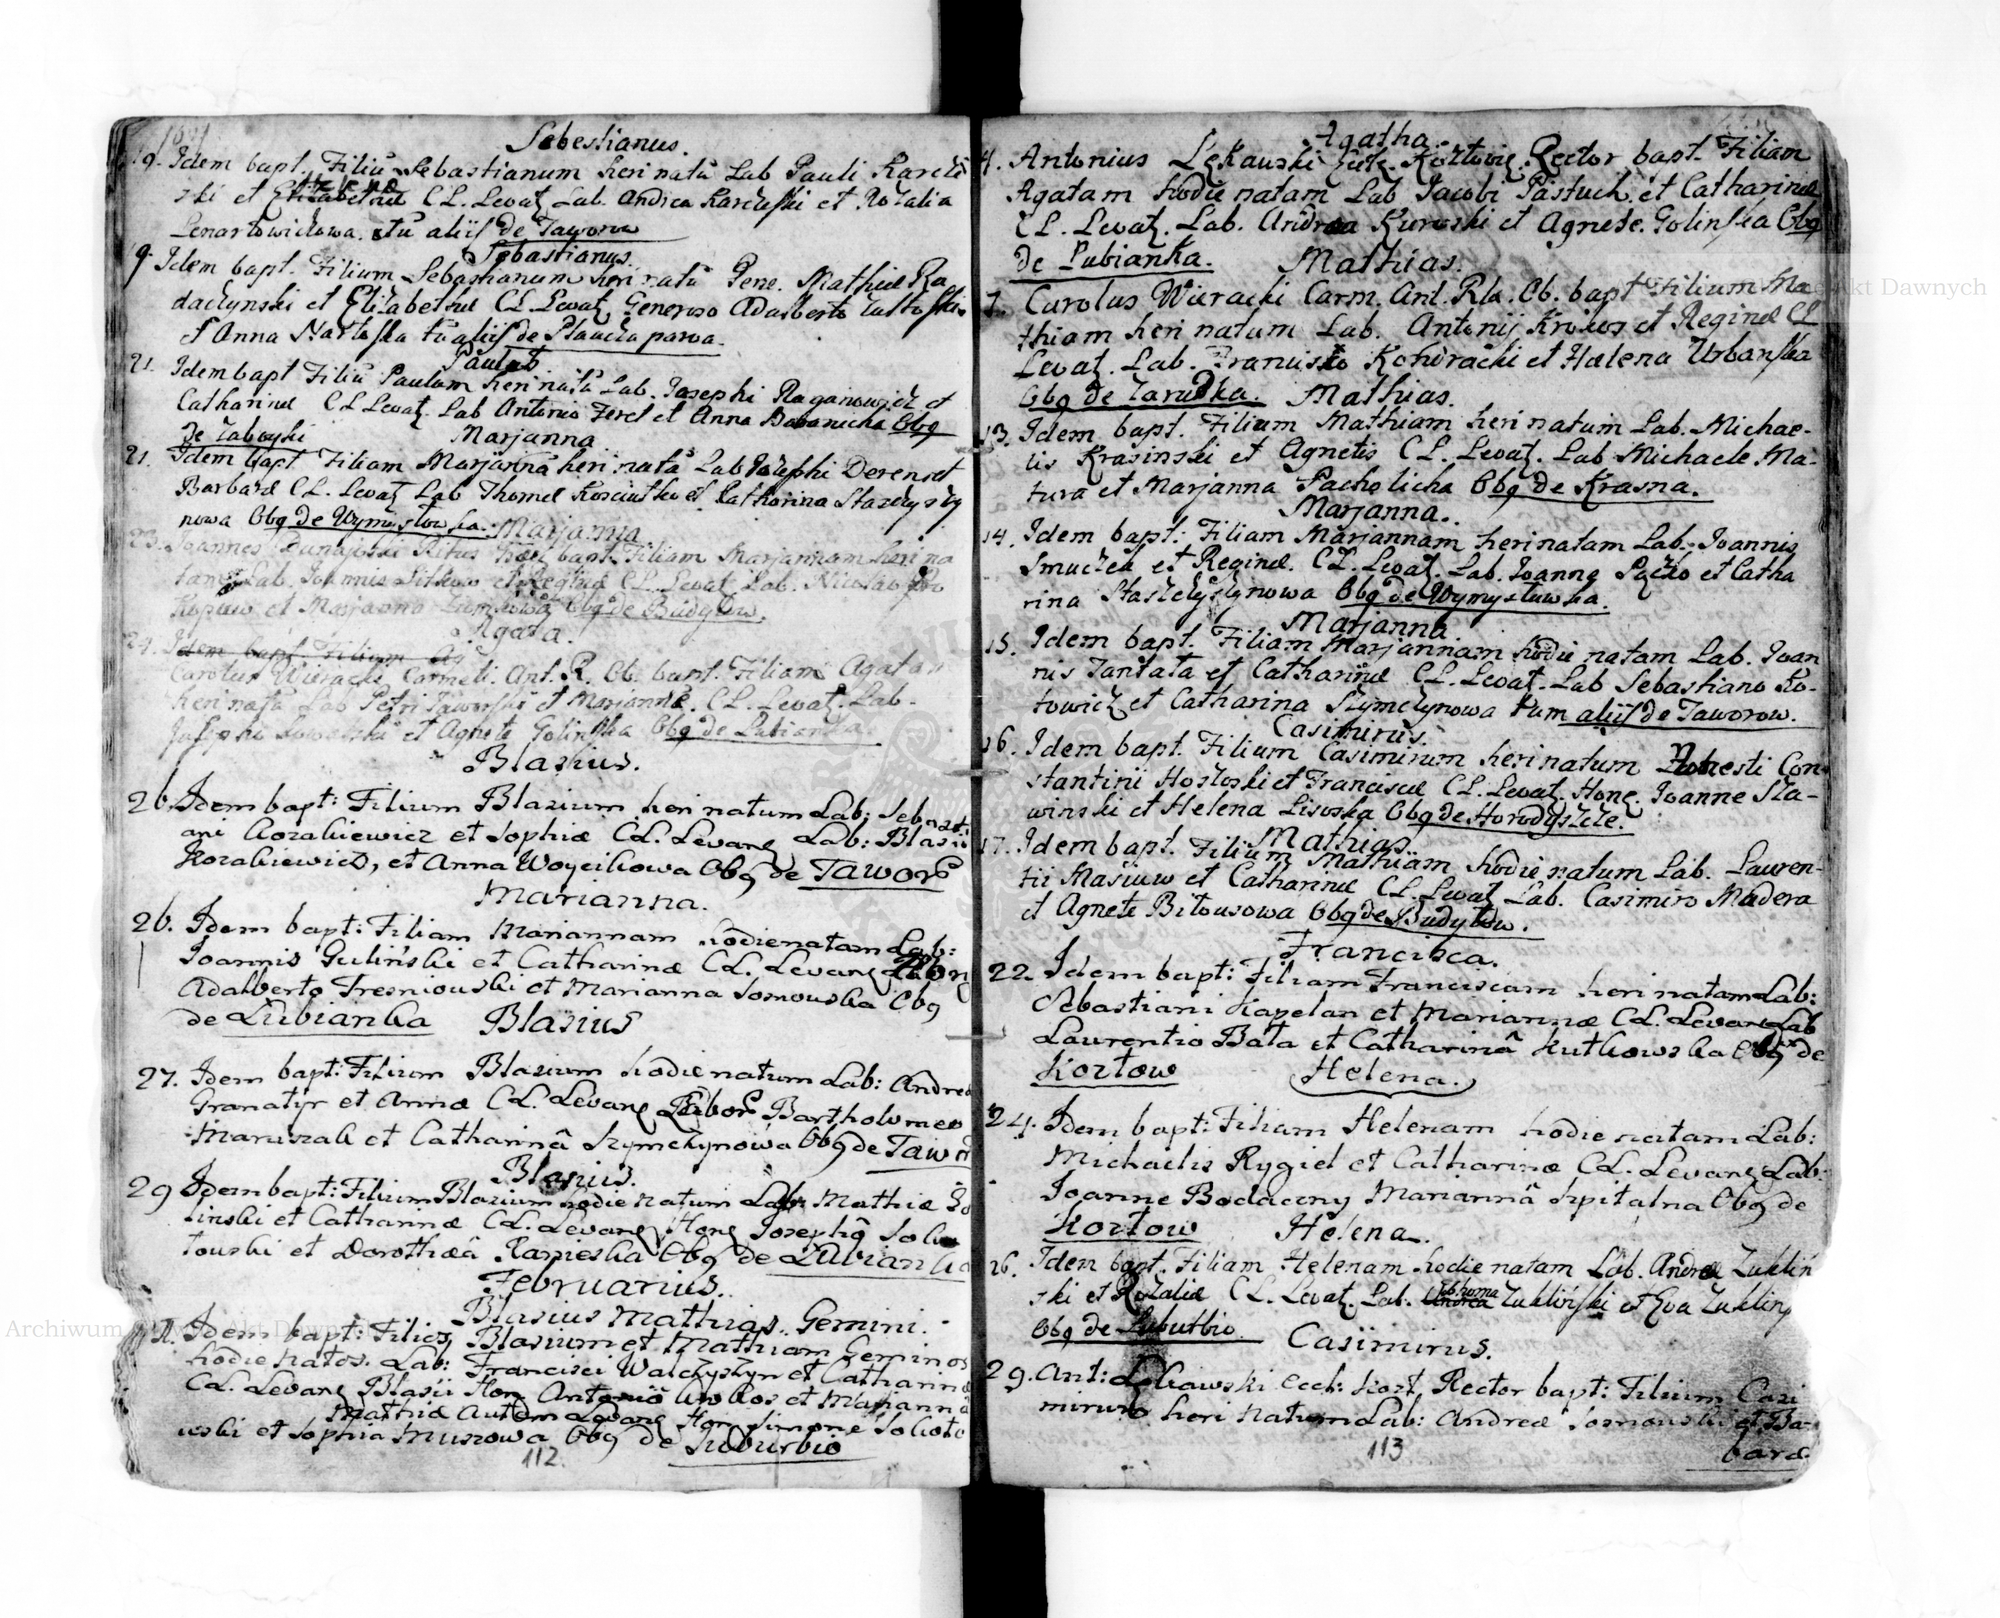 Sebestianus.
19. Idem bapt. Filiũ Sebastianum heri natũ Lab Pauli
ski et Elizabethæ CL. Levat. Lab. Andrea Karczyski et Rozalia
Lenartowiczowa. tũ aliis de Taworow
Sebastianus.
9. Idem bapt. Filium Sebastianum heri natũ Gene. Mathiæ Ra
daczynski et Elizabethæ CL Levat. Generoso Adalberto
et Anna tũ aliis de Plaucza parva.
Paulus
21. Idem bapt Filiũ Paulum heri natũ Lab. Josephi Raganowicz et
Catharinæ CL Levat. Lab Antonio Feret et Anna Babanicha Obq
de
Marjanna
21. Idem bapt. Filiam Marjannã heri natã Lab Josephi Deren et
Barbaræ CL. Levat Lab Thoma et Catharina Staszczyszy
nowa Obq De Wymysłowka. Marjanna
23. Joannes Dunajski Ritus bapt. Filiam Marjannam heri na
tam Lab. Joannis et Reginæ CL. Levat Lab. Nicolao
et Marjanna Obq de Budyłow.
Agata.
24. Idem bapt Filium Ag
Carolus Wieracki Carmeli. Ant. R. Ob. bapt. Filiam Agatam
heri natã Lab Petri Taworski et Mariannæ. CL. Levat. Lab.
Josepho et Agnete Golinska Obq de Lubianka.
Blasius.
26. Idem bapt: Filium Blasium heri natum Lab: Sebasti
ani Kozakiewicz et Sophiæ CL. Levanq Lab: Blasio
Kozakiewicz, et Anna Woycikowa Obq de Tawor
Marianna.
26. Idem bapt: Filiam Mariannam hodie natam Lab:
Joannis Guliński et Catharinæ CL. Levanq
Adalberto Tresniowski et Marianna Sosnouska Obq
de Lubianka Blasius
27. Idem bapt: Filium Blasium hodie natum Lab: Andreæ
Granatyr et Annæ CL. Levanq Labor Bartholomeo
Maruszak et Catharinâ Szymczynowa Obq de Tawor
Blasius.
29 Idem bapt: Filium Blasium hodie natum Lab: Mathiæ
linski et Catharinæ CL. Levanq Hong Josepho
touski et Dorotheâ Rapieska Obq de Lubianka
Februarius.
Blasius Mathias. Gemini.
Idem bapt: Filios Blasium et Mathiam Geminos
hodie natos. Lab: Francisci Walczyszyn et Catharinæ
CL. Levanq Blasii Hon Antonio et Mariannâ
Mathiæ autem Levanq Hon Simone Sokoło
wski et Sophia Musiowa Obq de Suburbio
112.
Agatha.
4. Antonius Lękauski Rector bapt. Filiam
Agatam hodie natam Lab Jacobi Pastuch. et Catharinæ
CL. Levat. Lab. Andrea Kuroski et Agnete. Golinska Obq
de Lubianka. Mathias.
7. Carolus Wieracki Carm. Ant. Rla. Ob. bapt Filium Ma
thiam heri natum Lab. Antonij et Reginæ CL
Levat. Lab. Francisco Kondracki et Helena Urbanska
Obq de Zarudka. Mathias.
13. Idem bapt. Filium Mathiam heri natum Lab. Michae-
lis Krasinski et Agnetis CL. Levat. Lab Michaele Ma-
tura et Marjanna Pacholicha Obq de Krasna.
Marjanna.
14. Idem bapt. Filiam Marjannam heri natam Lab. Joannis
Smuczek et Reginæ. CL. Levat. Lab. Joanne et Catha
rina Staszczyszynowa Obq de Wymysłuwka.
Marjanna
15. Idem bapt. Filiam Marjannam hodie natam Lab. Joan
nis Tantata et Catharinæ CL. Levat. Lab Sebastiano Ko-
towicz et Catharina Szymczynowa tum aliis de Taworow.
Casimirus.
16. Idem bapt. Filium Casimirum heri natum Honesti Con-
stantini Hostoski et Franciscæ CL. Levat. Hong. Joanne Sła-
winski et Helena Lisoska Obq de Horodyszcze.
Mathias.
17. Idem bapt. Filium Mathiam hodie natum Lab. Lauren-
tii Masiuw et Catharinæ CL. Levat Lab. Casimiro Madera
et Agnete Bitousowa Obq de Budyłow.
Francisca.
22. Idem bapt: Filiam Franciscam heri natam Lab:
Sebastiani Kapelan et Mariannæ CL. Levanq Lab
Laurentio Bata et Catharinâ Kutkowska Obq de
Kozłow Helena.
24. Idem bapt: Filiam Helenam hodie natam Lab:
Michaelis Rygiel et Catharinæ CL. Levanq Lab:
Joanne Bodaczny Mariannâ Szpitalna Obq de
Kozłow Helena.
26. Idem bapt. Filiam Helenam hodie natam Lab. Andreæ Zukliń
ski et Rozaliæ CL. Levat. Lab. Zukliński et Eva Zuklins
Obq de Suburbio. Casimirus.
29. Ant: Lękawski Eccl: Kozł. Rector bapt: Filium Casi
mirum heri natum Lab: Andreæ Sosnouski et Ba-
baræ
113
Archiwum Główne Akt Dawnych
Archiwum Główne Akt Dawnych